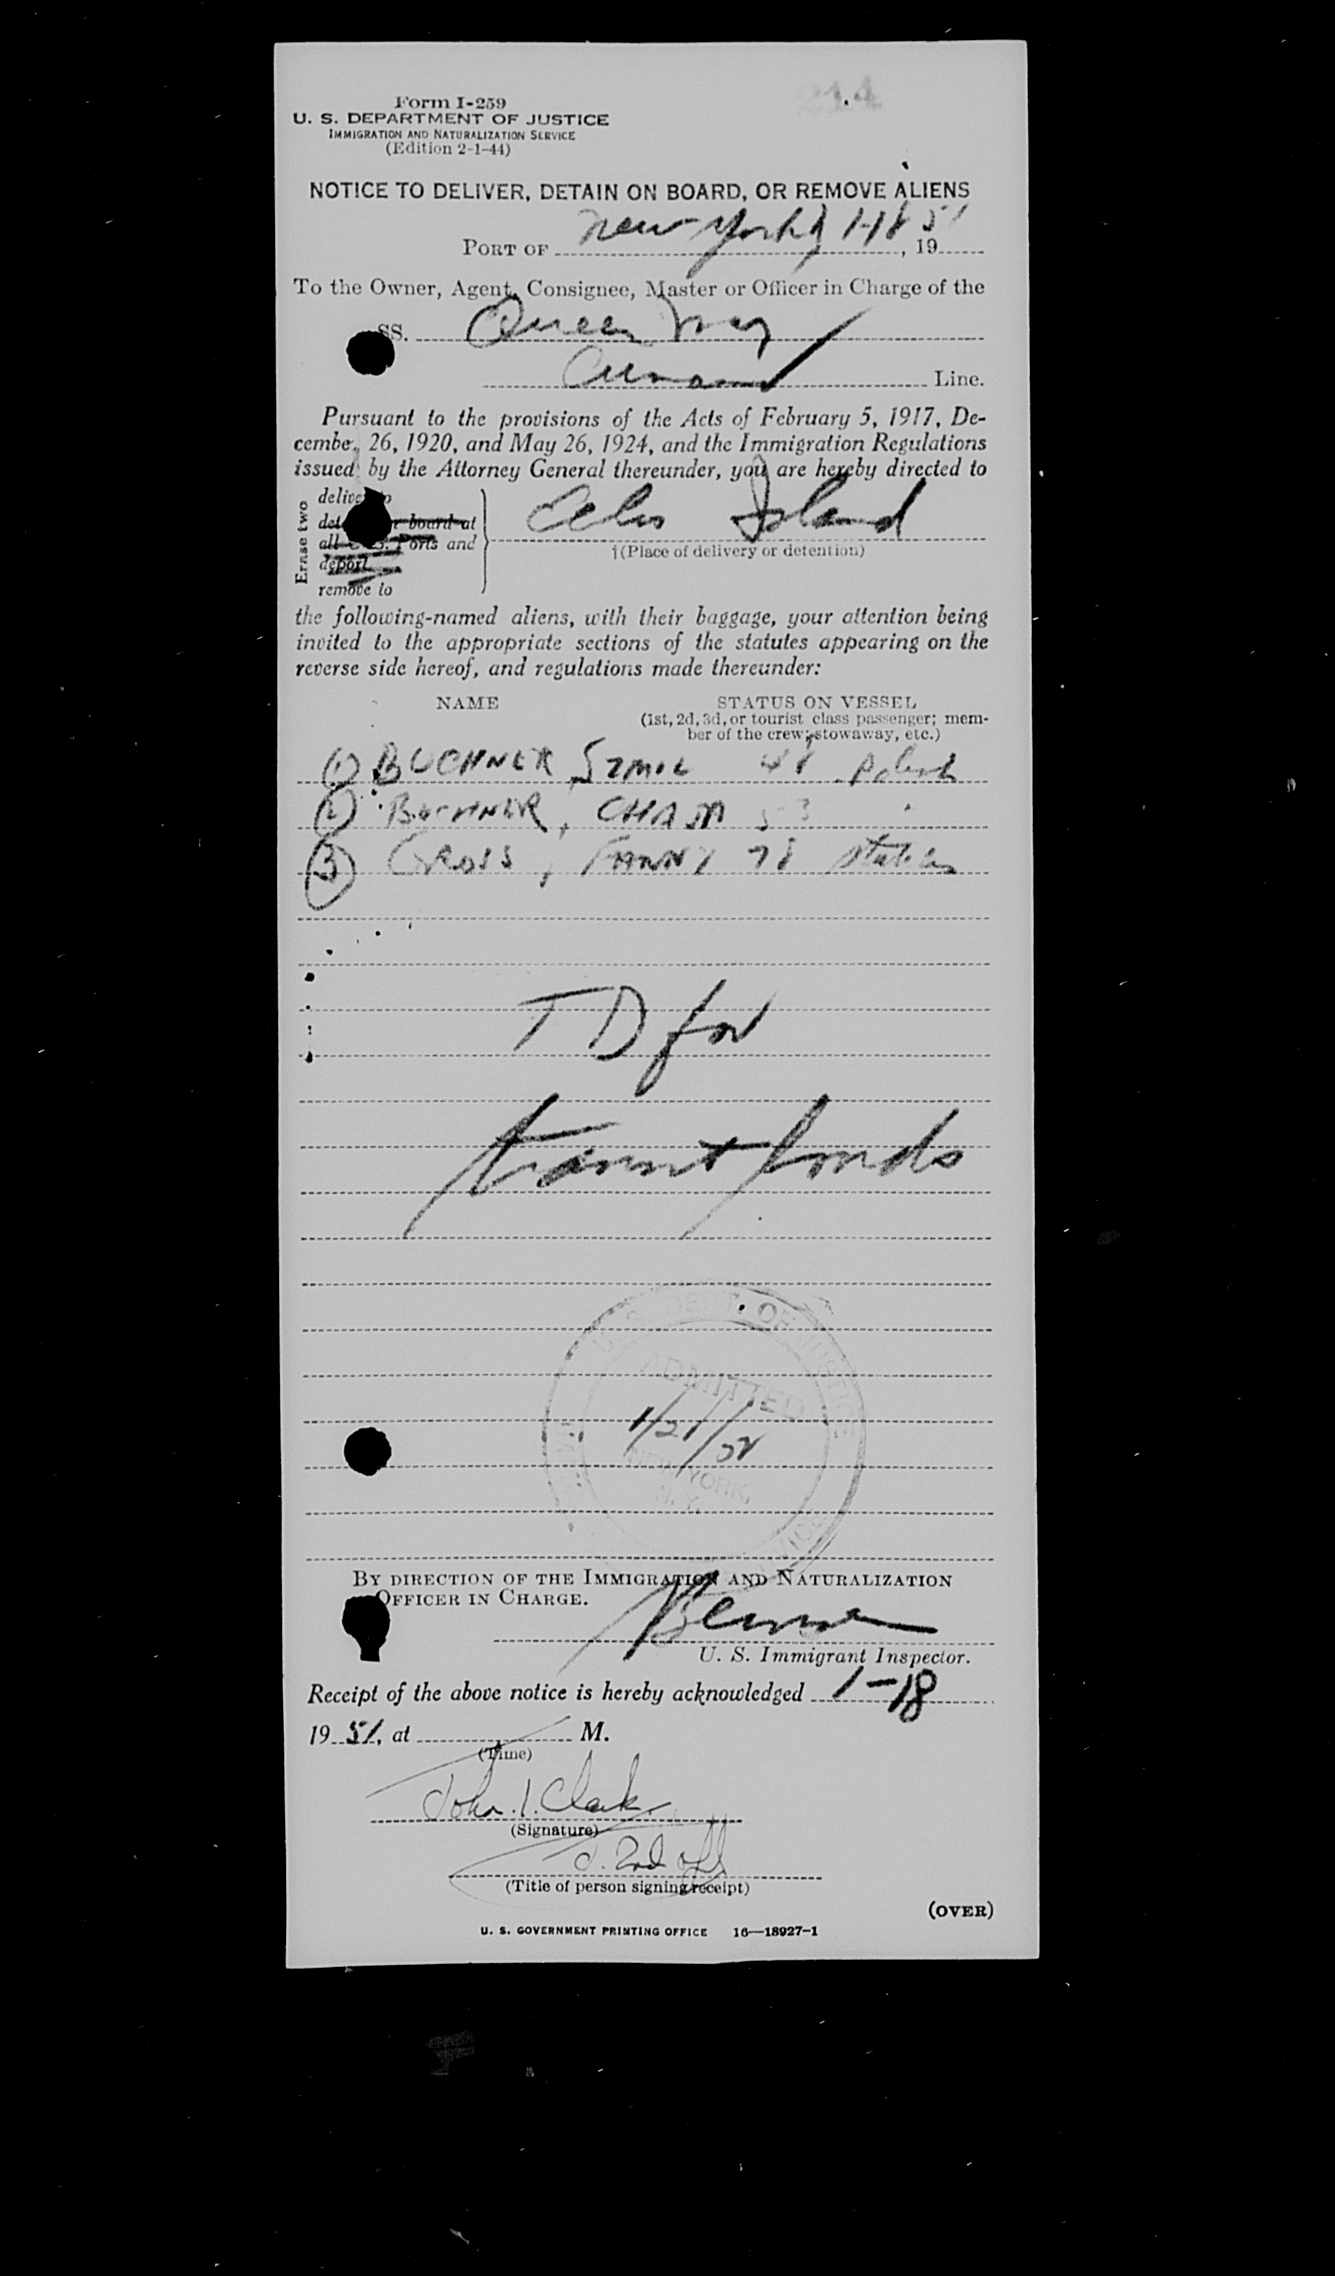 214
Form I-259
U. S. DEPARTMENT OF JUSTICE
IMMIGRATION AND NATURALIZATION SERVICE
(Edition 2-1-44)
NOTICE TO DELIVER, DETAIN ON BOARD, OR REMOVE ALIENS
PORT OF New York 1-18 51, 19
To the Owner, Agent, Consignee, Master or Officer in Charge of the
SS. Queen Mary
Cunard Line.
Pursuant to the provisions of the Acts of February 5, 1917, De-
cember 26, 1920, and May 26, 1924, and the Immigration Regulations
issued by the Attorney General thereunder, you are hereby directed to
Erase two
deliver to
board at
all U.S. Ports and
deport
remove to
Ellis Island
†(Place of delivery or detention)
the following-named aliens, with their baggage, your attention being
invited to the appropriate sections of the statutes appearing on the
reverse side hereof, and regulations made thereunder:
NAME STATUS ON VESSEL
(1st, 2d, 3d, or tourist class passenger; mem-
ber of the crew; stowaway, etc.)
(1) BUCHNER, SZMIL 48 Polish
(2) BUCHNER, CHAJA 53
(3) GROSS, FANNY 78 stateless
TD for
transit bonds
U.S. DEPT. OF JUSTICE
ADMITTED
1/21/
NEW YORK,
N.Y.
BY DIRECTION OF THE IMMIGRATION AND NATURALIZATION
OFFICER IN CHARGE.
U. S. Immigrant Inspector.
Receipt of the above notice is hereby acknowledged 1-18
1951, at M.
(Time)
John. I. Clark
(Signature)
J. 2nd off
(Title of person signing receipt)
(OVER)
U. S. GOVERNMENT PRINTING OFFICE 16—18927-1